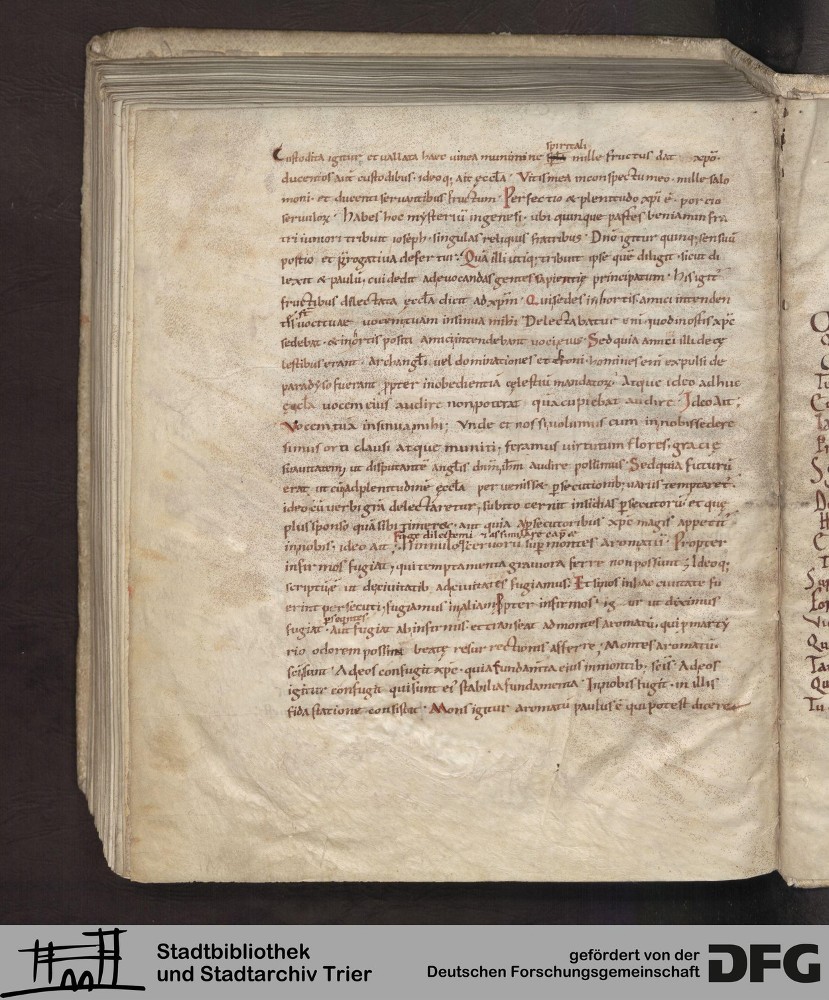 Custodita igitur et uallata haec uinea munimine
spiritali
mille fructus dat xpo·
ducentos aut custodibus· ideoq; ait eccła· Vitis mea in conspectu meo· mille salo
moni· et ducenti seruantibus fructum· Perfectio & plenitudo xpi ē· portio
seruuloꝝ· Habes hoc mysteriū in genesi· ubi quinque partes beniamin fra
tri iuniori tribuit ioseph· singulas reliquis fratribus· Dnō igitur quinq; sensuū
portio et prerogatiua defertur· Quā illi utiq; tribuit ipse quē diligit· sicut di
lexit & paulū· cui dedit ad euocandas gentes sapientię principatum· His igit
fructibus delectata ęccła dicit ad xpm· Qui sedes in hortis· amici intenden
tes st uoci tuae uocem tuam insinua mihi· Delectabatur enī quod in ortis xpc
sedebat· & in hortis positi amici intendebant uoci eius· Sed quia amici illi de cę
lestibus erant· archangłi· uel dominationes et throni· homines enī expulsi de
paradyso fuerant ꝓpter inobedientiā cęlestiū mandatoꝝ· Atque ideo adhuc
ęccła uocem eius audire non poterat quā cupiebat audire· Ideo ait;
Vocem tuā insinua mihi; Vnde et nos si uolumus eum in nobis sedere
simus orti clausi atque muniti; feramus uirtutum flores· gracię
suauitatem; ut disputantē angłis dnm ihm audire possimus· Sed quia futurū
erat ut cū ad plenitudinē ęccła peruenisset ꝑsecutionib; uariis temptaret·
ideo cū uerbi gra delectaretur; subito cernit insidias ꝑsecutorū et que
plus sponso quā sibi timeret· aut quia a ꝑsecutoribus xpc magis appetit
in nobis; ideo ait·
Fuge dilecte mi & assimilare capreę
Hinnulo ceruorū super montes aromatū· Propter
infirmos fugiat; qui temptamenta grauiora ferre non possunt; Ideoq;
scriptū ē ut de ciuitatib ad ciuitates fugiamus· Et si nos in hac ciuitate fu
erint persecuti· fugiamus in aliam Ppter infirmos· ig ur ut diximus
fugiat· Aut fugiat ab infirmis· et transeat ad montes aromatū· qui ꝑ marty
rio odorem possint beatę resurrectionis afferre; Montes aromatū·
sci sunt· Ad eos confugit xpc· quia fundamta eius in montib; scis· Ad eos
igitur confugit qui sunt ei stabilia fundamenta· In nobis fugit· in illis
fida statione consistit· Mons igitur aromatū paulus ē qui potest dicere
Stadtbibliothek
und Stadtarchiv Trier
gefördert von der
Deutschen Forschungsgemeinschaft
DFG